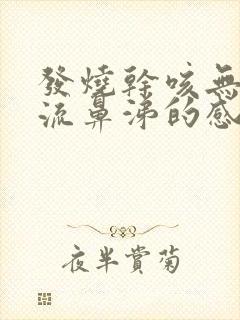 發燒幹咳無
流鼻涕的感
夜半賞菊